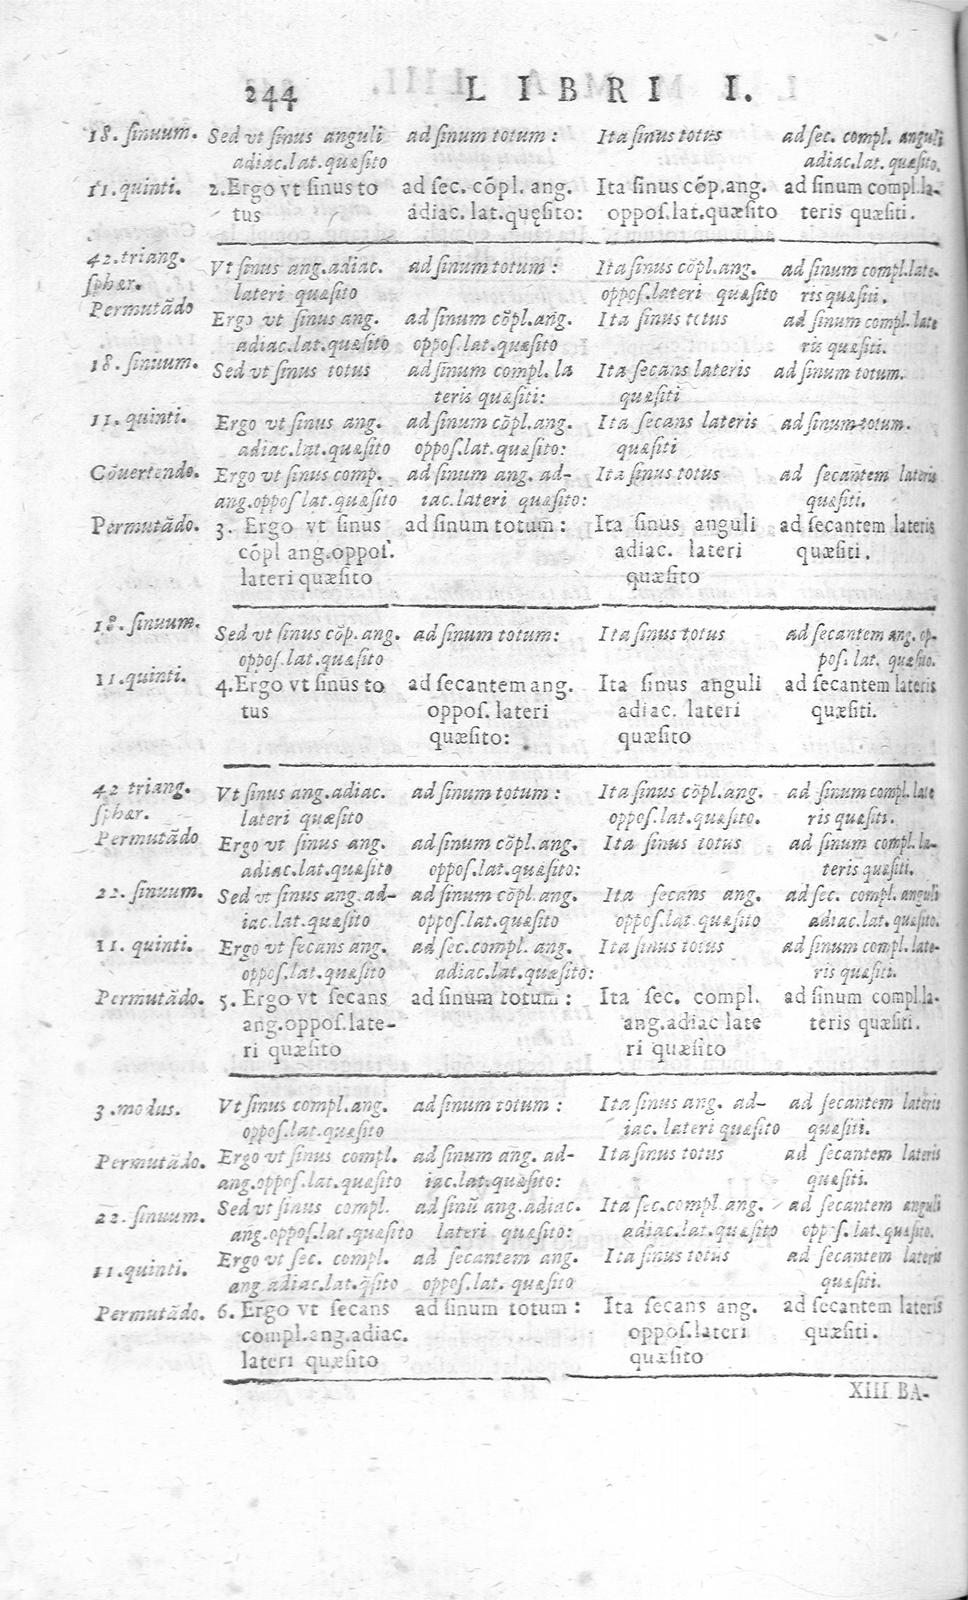 244 LIBRI I.
18. sinuum. Sed vt sinus anguli ad sinum totum: Ita sinus totus ad sec. compl. anguli
adiac.lat.quæsito adiac.lat. quæsito.
11. quinti. 2. Ergo vt sinus to ad sec. cõpl. ang. Ita sinus cõp.ang. ad sinum compl.la-
tus adiac. lat.quęsito: oppos.lat.quæsito teris quæsiti.
42.triang. Vt sinus ang.adiac. ad sinum totum: Ita sinus cõpl.ang. ad sinum compl.late-
sphær. lateri quæsito oppos.lateri quæsito ris quæsiti.
Permutãdo Ergo vt sinus ang. ad sinum cõpl.ang. Ita sinus totus ad sinum compl.late
adiac.lat.quæsito oppos.lat.quæsito ris quæsiti.
18. sinuum. Sed vt sinus totus ad sinum compl. la Ita secans lateris ad sinum totum.
teris quæsiti: quæsiti
11. quinti. Ergo vt sinus ang. ad sinum cõpl.ang. Ita secans lateris ad sinum totum.
adiac.lat.quæsito oppos.lat.quæsito: quæsiti
Cõuertendo. Ergo vt sinus comp. ad sinum ang. ad- Ita sinus totus ad secantem lateris
ang.oppos lat.quæsito iac.lateri quæsito: quæsiti.
Permutãdo. 3. Ergo vt sinus ad sinum totum: Ita sinus anguli ad secantem lateris
cõpl ang.oppos. adiac. lateri quæsiti.
lateri quæsito quæsito
18. sinuum. Sed vt sinus cõp. ang. ad sinum totum: Ita sinus totus ad secantem ang. op-
oppos.lat.quæsito pos. lat. quæsito.
11.quinti. 4. Ergo vt sinus to ad secantem ang. Ita sinus anguli ad secantem lateris
tus oppos. lateri adiac. lateri quæsiti.
quæsito: quæsito
42 triang. Vt sinus ang.adiac. ad sinum totum: Ita sinus cõpl.ang. ad sinum compl.late
sphær. lateri quæsito oppos.lat.quæsito. ris quæsiti.
Permutãdo Ergo vt sinus ang. ad sinum cõpl.ang. Ita sinus totus ad sinum compl.la-
adiac.lat.quæsito oppos.lat.quæsito: teris quæsiti.
22. sinuum. Sed vt sinus ang.ad- ad sinum cõpl.ang. Ita secans ang. ad sec. compl.anguli
iac.lat.quæsito oppos.lat.quæsito oppos.lat quæsito adiac.lat.quæsito.
11. quinti. Ergo vt secans ang. ad sec.compl. ang. Ita sinus totus ad sinum compl.late-
oppos.lat.quæsito adiac.lat.quæsito: ris quæsiti.
Permutãdo. 5. Ergo vt secans ad sinum totum: Ita sec. compl. ad sinum compl.la-
ang.oppos.late- ang.adiac late teris quæsiti.
ri quæsito ri quæsito
3.modus. Vt sinus compl.ang. ad sinum totum: Ita sinus ang. ad- ad secantem lateris
oppos.lat.quæsito iac. lateri quæsito quæsiti.
Permutãdo. Ergo vt sinus compl. ad sinum ang. ad- Ita sinus totus ad secantem lateris
ang.oppos.lat.quæsito iac.lat.quæsito: quæsiti.
22. sinuum. Sed vt sinus compl. ad sinũ ang.adiac. Ita sec.compl ang. ad secantem anguli
ang.oppos.lat.quæsito lateri quæsito: adiac.lat.quæsito oppos.lat.quæsito.
11.quinti. Ergo vt sec. compl. ad secantem ang. Ita sinus totus ad secantem lateris
ang adiac.lat.q̃sito oppos.lat. quæsito quæsiti.
Permutãdo. 6. Ergo vt secans ad sinum totum: Ita secans ang. ad secantem lateris
compl.ang.adiac. oppos.lateri quæsiti.
lateri quæsito quæsito
XIII. BA-